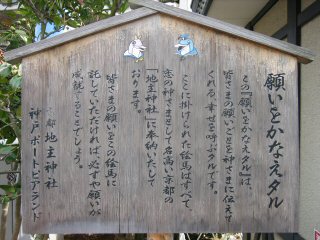 願いをかなえタル
この『願いがかなえタル』は、
皆さまの願いごとを神さまに伝えて
くれる、幸せを呼ぶタルです。
ここに掛けられた絵馬はすべて、
恋の神さまとして名高い京都の
「地主神社」に奉納いたして
おります。
皆さまの願いをこの絵馬に
託していただければ、必ずや願いが
成就することでしょう。
京都 地主神社
神戸ポートピアランド